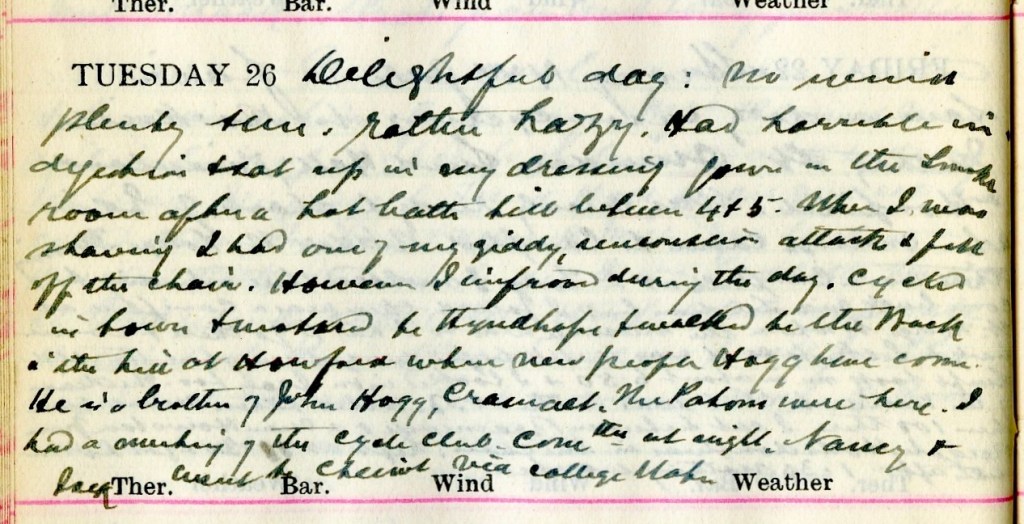 Ther. Bar. Wind Weather
TUESDAY 26 Delightful day: no wind
plenty sun. rather hazy. Had horrible in
digestion & sat up in my dressing gown in the Smoke
room after a hot bath till between 4 & 5. When I was
shaving I had one of my giddy, unconscious attacks & fell
off the chair. However I improved during the day. Cycled
in town & motored to & walked to the Back
the hill at Howford where new people Hogg have come.
He is a brother of John Hogg, . The Patons were here. I
had a meeting of the Cycle Club Comttee at night. Nancy &
Jack went to via college
Ther. Bar. Wind Weather